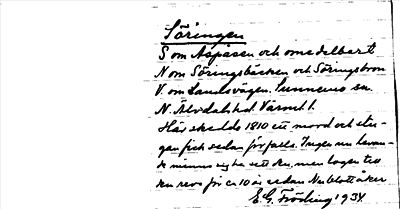 Söringen
S om Aspåsen och omedelbart
N om Söringsbäcken och Söringsbron
V. om Landsvägen. Sunnemo sn.
N. Älvdals hd Värml.
Här skedde 1810 ett mord och stu-
gan fick sedan förfalla. Ingen nu levan-
de minns sig ha sett den, men logen
den revs för ca 10 år sedan Nu blott åker
E. G. Fröding 1934